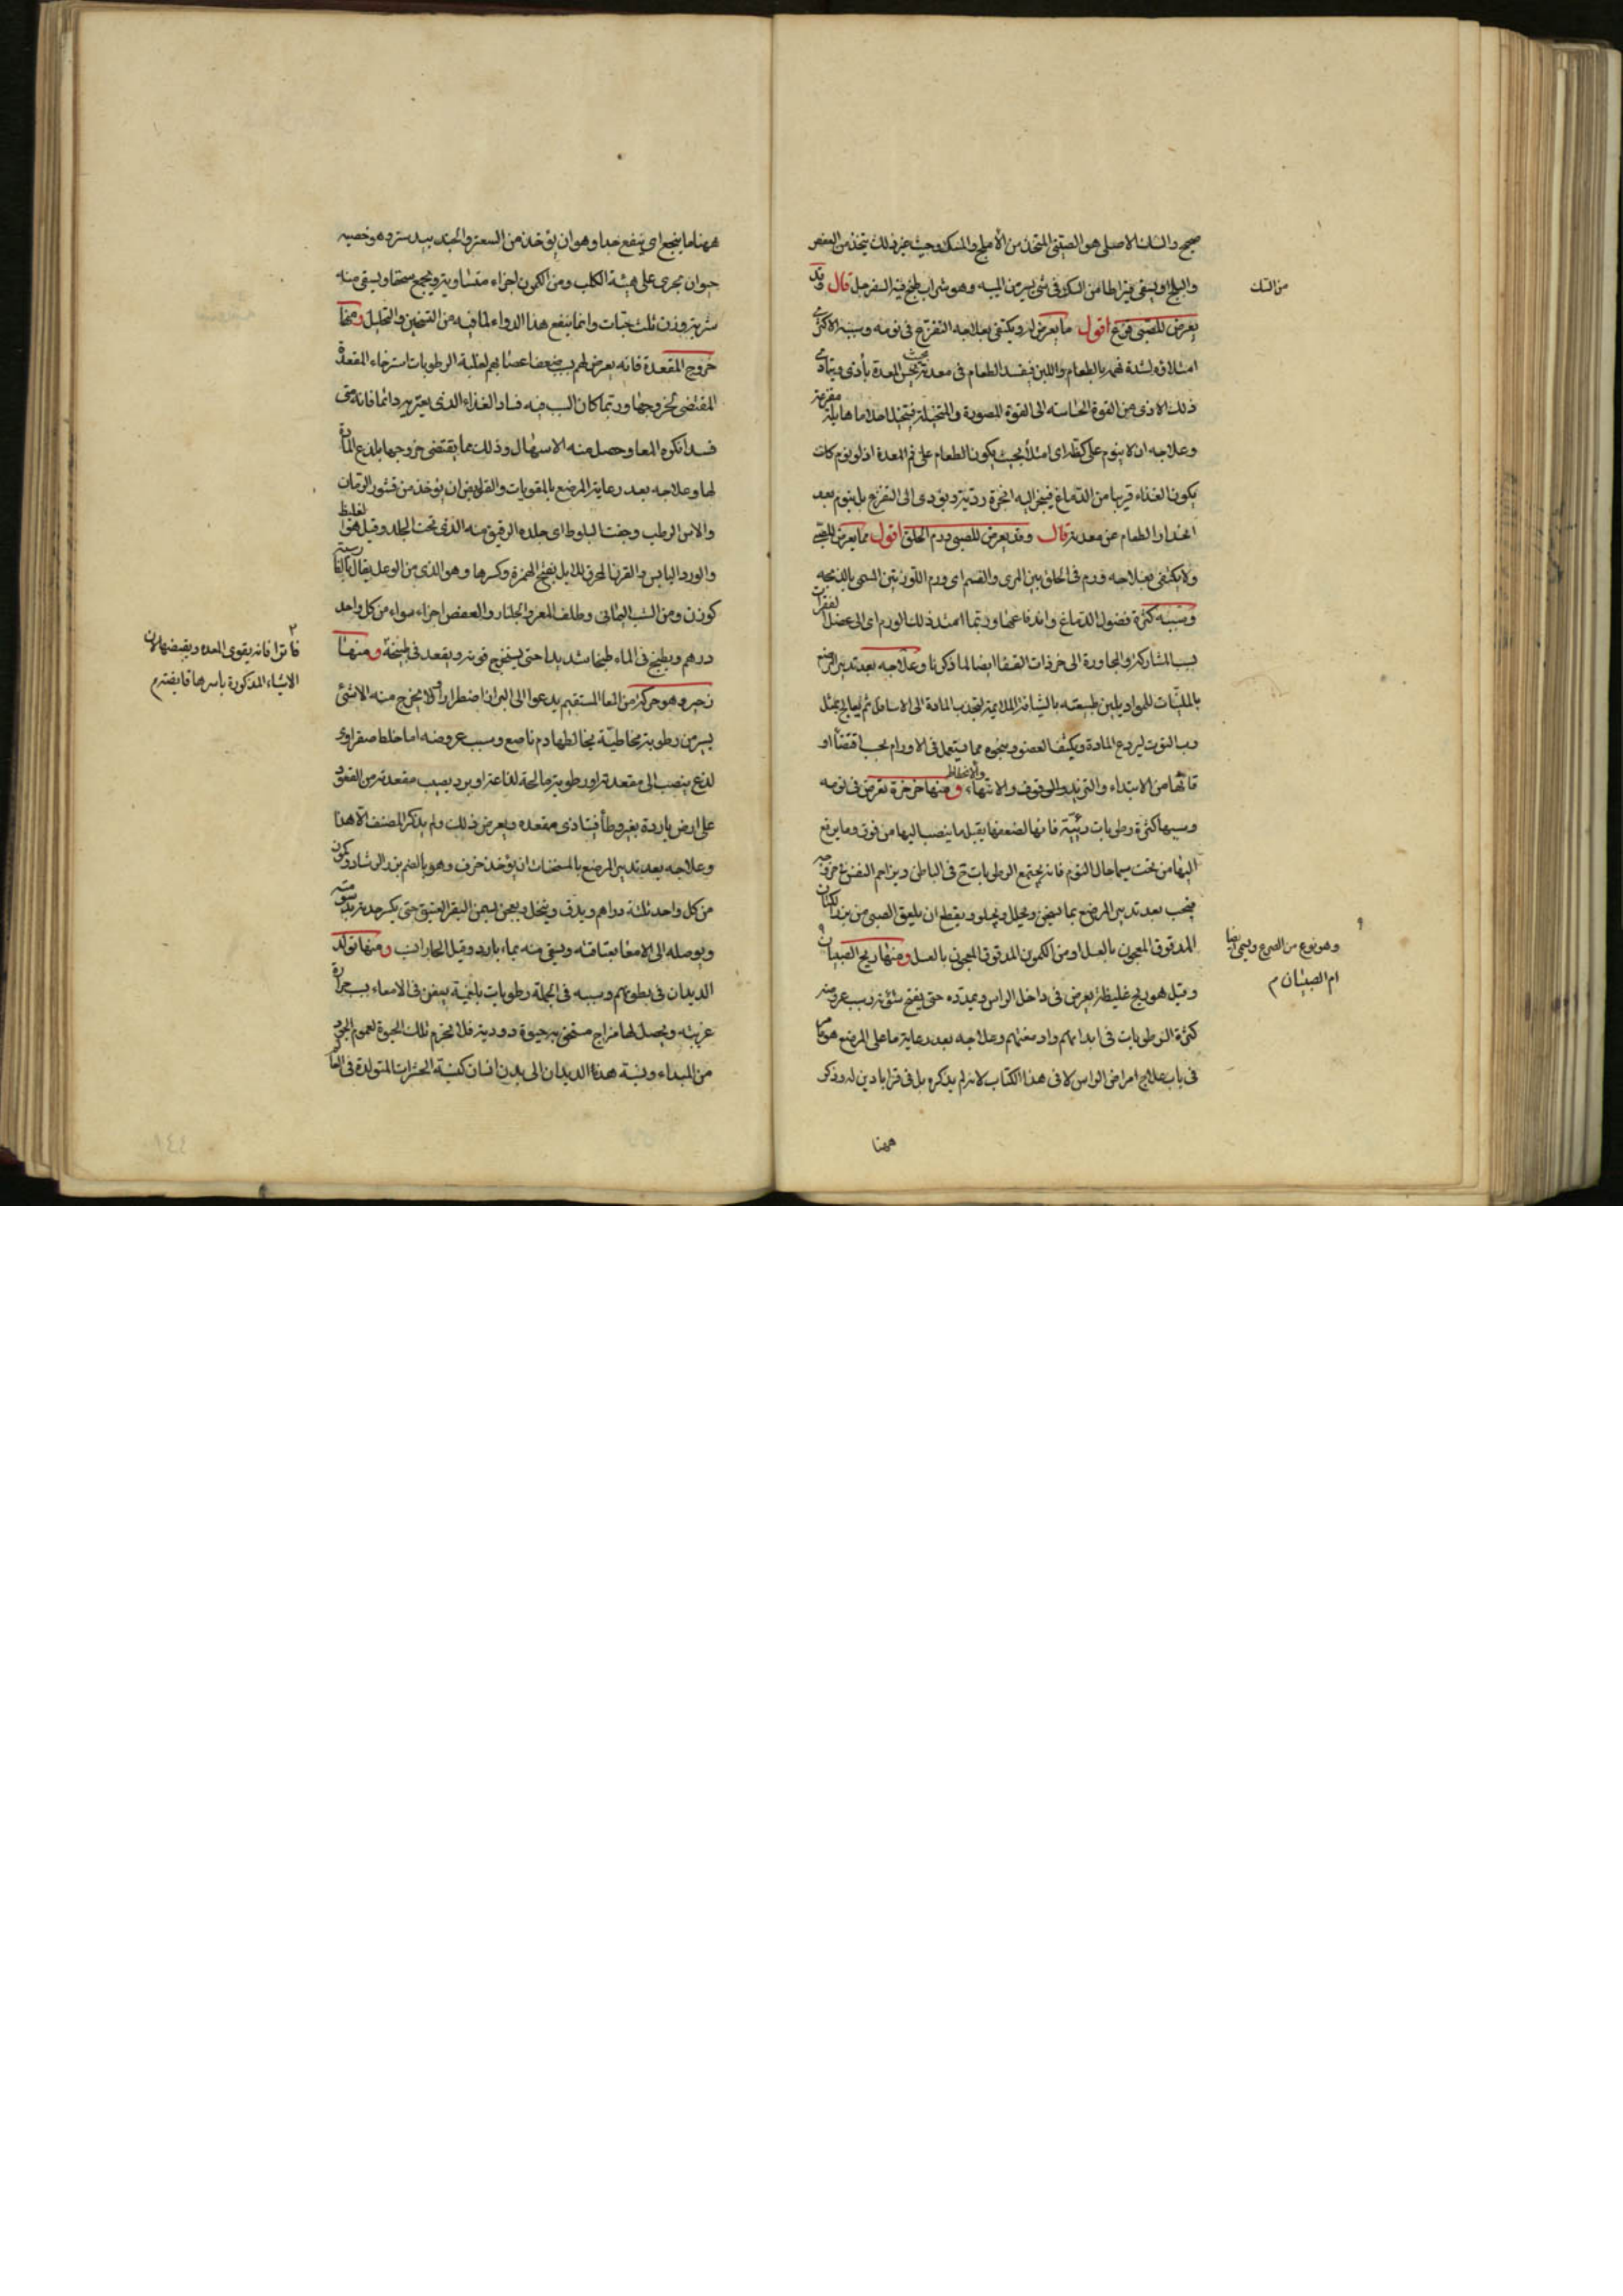 صحيح والسك الاصلي هو الصيني المتخذ من الأملج والمسك وحيث عز ذلك يتخذ من العفص
والبلح او يسقى قيراطا من السك في شئ يسير من الميبه وهو شراب طبخ فيه السفرجل قال وقد
من السك
يعرض للصبي فزع اقول مما يعرض له ويكتفى بعلاجه التفزع في نومه وسببه الاكثرى
امتلاؤه لشدة نهمه بالطعام واللبن فيفسد الطعام في معدته بحيث يحس المعدة بأذى ويتأدى
ذلك الاذى من القوة الحاسة الى القوة المصورة والمتخيلة فتتخيل احلاما هايلة مفزعة
وعلاجه ان لا ينوم على كظة اى امتلأ بحيث يكون الطعام على فم المعدة اذ لو نوم كان
يكون الغذاء قريبا من الدماغ فيتبخر اليه ابخرة ردية ويؤدى الى التفزع بل ينوم بعد
انحدار الطعام عن معدته قال وقد يعرض للصبي ورم الحلق اقول مما يعرض للصبي
ولا يكتفى بعلاجه ورم في الحلق بين المرى والفم اى ورم اللوزتين المسمى بالذبحه
وسببه كثرة فضول الدماغ واندفاعها وربما امتد ذلك الورم اى الى عضل الفقرات
بسبب المشاركة والمجاورة الى خرزات القفا ايضا لما ذكرنا وعلاجه بعد تدبير المرضع
بالملينات للمواد يلين طبيعته بالشيافة الملايمة لتجذب المادة الى الاسافل ثم يعالج بمثل
رب التوت ليردع المادة ويكثف العضو ونحوه مما يستعمل في الاورام بحسب اقتضأ او
قاتها من الابتداء والتزيد والوقوف والانتهاء والانحطاط ومنها خرخرة تعرض في نومه
وسببها كثرة رطوبات رئته فانها لضعفها يقبل ما ينصب اليها من فوق وما يرفع
اليها من تحت سيما حال النوم فانه يجتمع الرطوبات ح في الباطن ويزاحم التنفس في خروجه
فيجب بعد تدبير المرضع بما ينضج ويحلل ويجلو ويقطع ان يلعق الصبي من بزر الكتان
المدقوق المعجون بالعسل او من الكمون المدقوق المعجون بالعسل ومنها ريح الصبيان
وهو نوع من الصرع ويسمى ايضا
ام الصبيان م
وقيل هو ريح غليظة يعرض في داخل الراس ويمدده حتى يفتح شؤنه وسبب عروضه
كثرة الرطوبات في ابدانهم وادمغتهم وعلاجه بعد رعاية ما على المرضع هو ما
في باب علاج امراض الراس لا في هذا الكتاب لانه لم يذكره بل في قراباذين له وذكر
ههنا
ههنا ما ينجع اى ينفع جدا وهو ان يؤخذ من السعتر والجندبيدستر وهو خصيه
حيوان بحرى على هيئة الكلب ومن الكمون اجزاء متساوية ويجمع سحقا ويسقى منه
شربة وزن ثلث حبات وانما ينفع هذا الدواء لما فيه من التسخين والتحليل ومنها
خروج المقعدة فانه يعرض لهم بسبب ضعف اعصابهم لغلبة الرطوبات استرخاء المقعدة
المقتضى لخروجها وربما كان السبب فيه فساد الغذاء الذى يعتريهم دائما فانه متى
فسد انكره المعا وحصل منه الاسهال وذلك مما يقتضى خروجها بلذع المارة
لها وعلاجه بعد رعاية المرضع بالمقويات والقوابض ان يؤخذ من قشور الرمان
والاس الرطب وجفت البلوط اى جلده الرقيق منه الذى تحت الجلد وقيل هو الغليظ
والورد اليابس والقرن المحرق للايل بفتح الهمزة وكسرها وهو الذى من الوعل يقال بالفارسية
كوزن ومن الشب اليمانى وظلف المعز والجلنار والعفص اجزاء سواء من كل واحد
درهم ويطبخ في الماء طبخا شديدا حتى يستخرج قوته ويقعد في طبيخه ومنها
فاترا فانه يقوى المعدة ويقبضها لان
الاشياء المذكورة باسرها قابضة م
زحير وهو حركة من المعا المستقيم يدعو الى البراز اضطرارا ولا يخرج منه الا شئ
يسير من رطوبة مخاطية يخالطها دم ناصع وسبب عروضه اما خلط صفراوى
لذع ينصب الى مقعدته او رطوبة مالحة لذاعة او برد يصيب مقعدته من القعود
على ارض باردة بغير وطأ فيتاذى مقعده ويعرض ذلك ولم يذكر المصنف الا هذا
وعلاجه بعد تدبير المرضع بالمسخنات ان يؤخذ حرف وهو بالضم بزر الرشاد وكمون
من كل واحد ثلثة دراهم ويدق وينخل ويعجن بسمن البقر العتيق حتى يكسر حدته بدسومته
ويوصله الى الامعاء بعتاقته ويسقى منه بماء بارد وقيل الحار انسب ومنها تولد
الديدان في بطونهم وسببه في الجملة رطوبات بلغمية يتعفن في الامعاء بسبب حرارة
غريبة ويحصل لها مزاج مستعد به حيوة دودية فلا يحرم تلك الحيوة لعموم الجود
من المبداء ونسبة هذه الديدان الى بدن انسان كنسبة الحشرات المتولدة في العالم